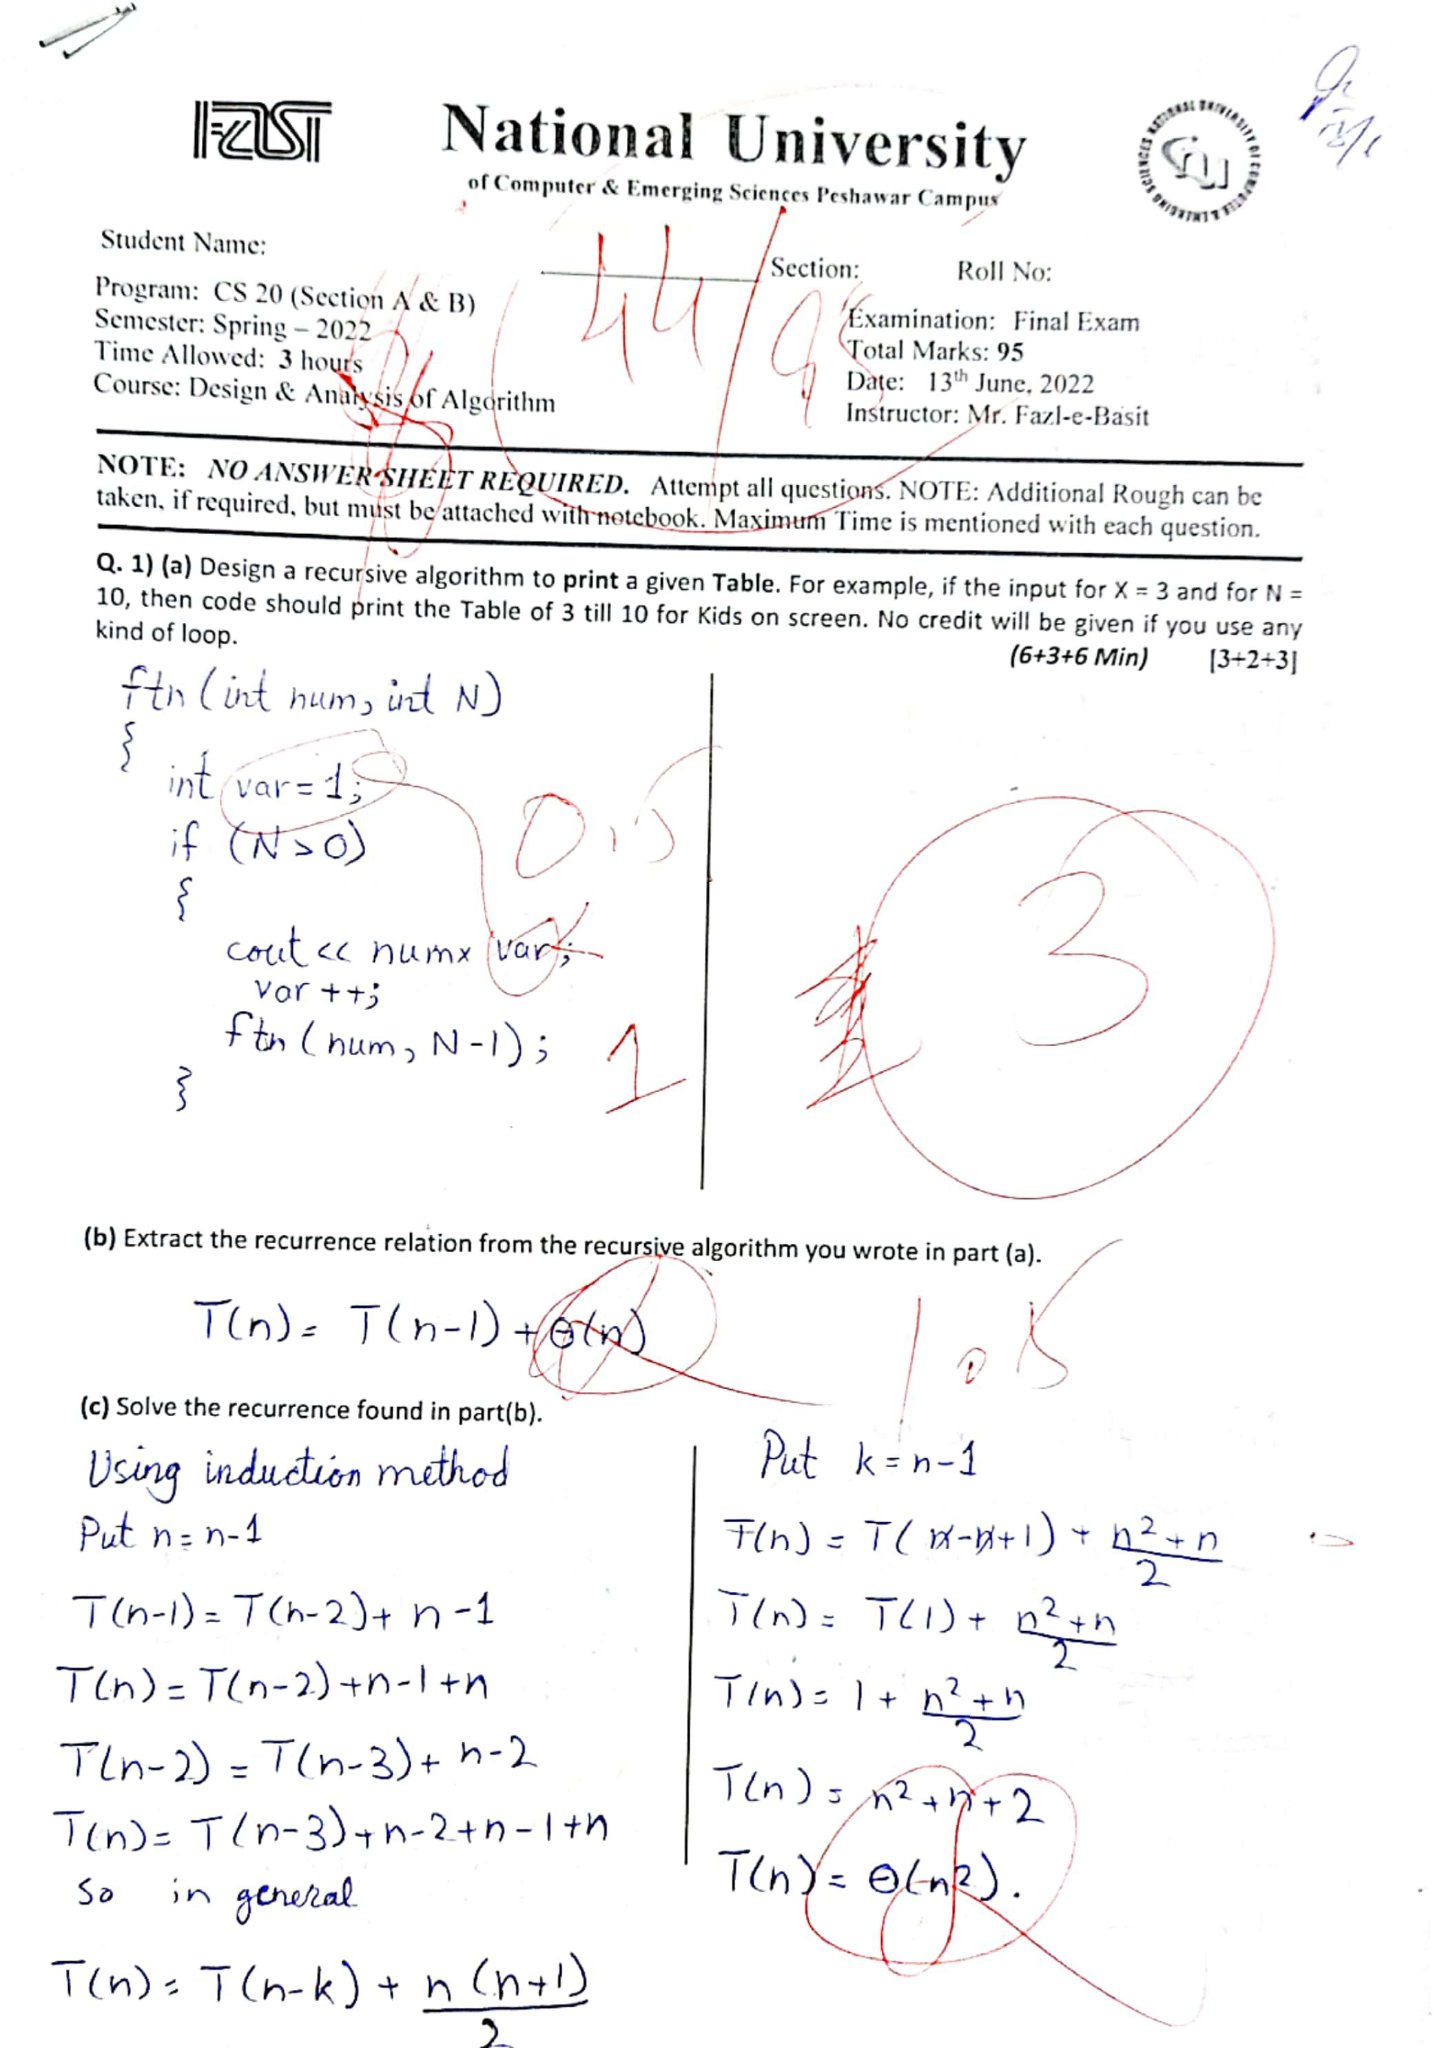 FAST
National University
of Computer & Emerging Sciences Peshawar Campus
NATIONAL UNIVERSITY OF COMPUTER & EMERGING SCIENCES
44/95
Student Name:
Section: Roll No:
Program: CS 20 (Section A & B)
Semester: Spring – 2022
Time Allowed: 3 hours
Course: Design & Analysis of Algorithm
Examination: Final Exam
Total Marks: 95
Date: 13th June, 2022
Instructor: Mr. Fazl-e-Basit
NOTE: NO ANSWER SHEET REQUIRED. Attempt all questions. NOTE: Additional Rough can be
taken, if required, but must be attached with notebook. Maximum Time is mentioned with each question.
Q. 1) (a) Design a recursive algorithm to print a given Table. For example, if the input for X = 3 and for N =
10, then code should print the Table of 3 till 10 for Kids on screen. No credit will be given if you use any
kind of loop.
(6+3+6 Min) [3+2+3]
ftn (int num, int N)
{
int var = 1;
if (N > 0)
0.5
{
cout << num x var;
var ++;
ftn (num, N-1);
1
}
3
(b) Extract the recurrence relation from the recursive algorithm you wrote in part (a).
T(n) = T(n-1) + Θ(n)
1.5
(c) Solve the recurrence found in part(b).
Using induction method
Put n = n-1
T(n-1) = T(n-2) + n -1
T(n) = T(n-2) + n-1 + n
T(n-2) = T(n-3) + n-2
T(n) = T(n-3) + n-2 + n-1 + n
So in general
T(n) = T(n-k) + n (n+1)
2
Put k = n-1
T(n) = T( n-n+1) + n² + n
2
T(n) = T(1) + n² + n
2
T(n) = 1 + n² + n
2
T(n) = n² + n + 2
T(n) = Θ(n²).